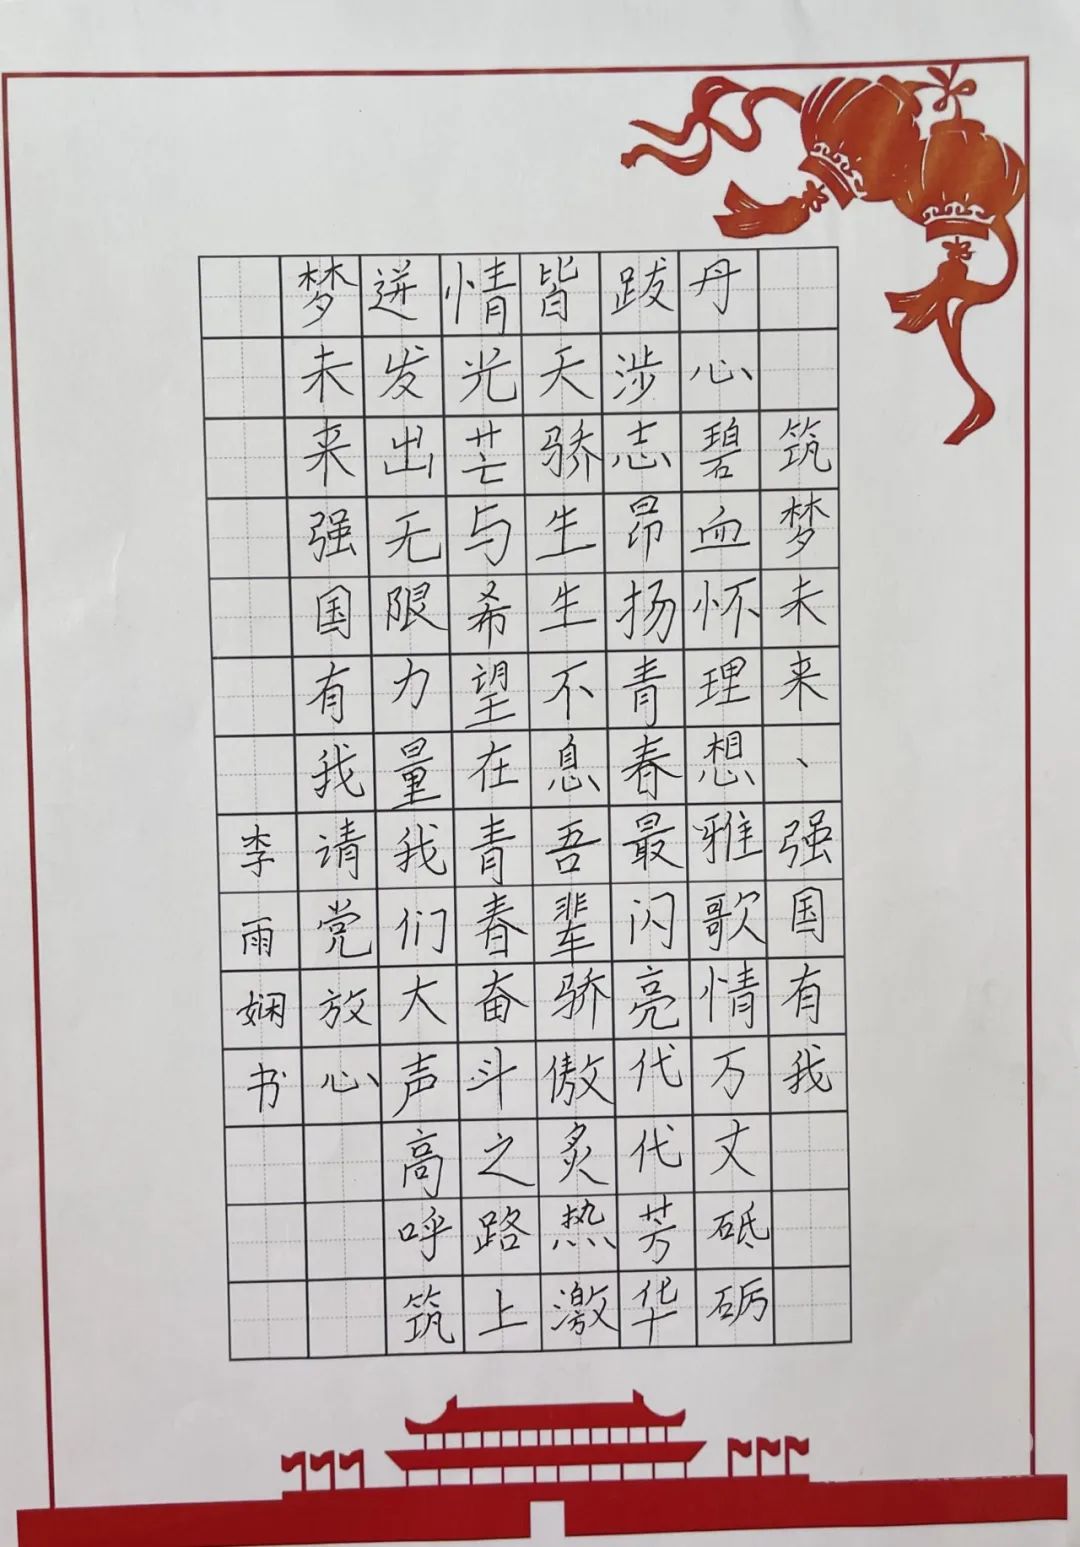 筑梦未来、强国有我
丹心碧血怀理想雅歌情万丈砥砺
跋涉志昂扬青春最闪亮代代芳华
皆天骄生生不息吾辈骄傲炙热激
情光芒与希望在青春奋斗之路上
迸发出无限力量我们大声高呼筑
梦未来强国有我请党放心
李雨娴书